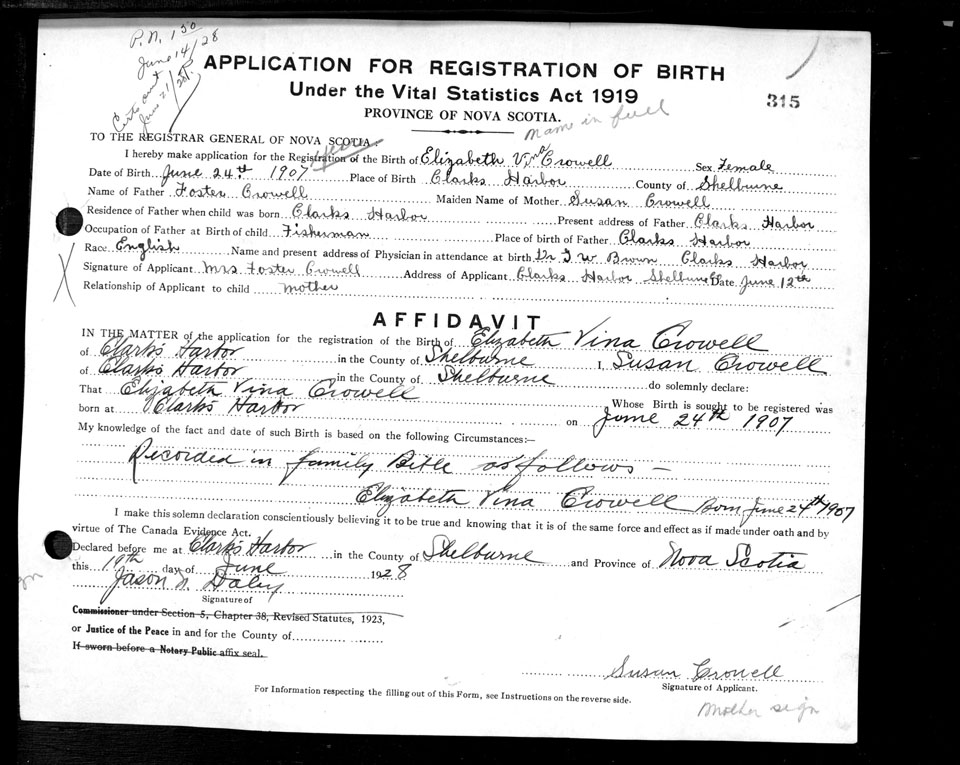 P.N. 150
June 14/28
Certs sent
June 21/28
APPLICATION FOR REGISTRATION OF BIRTH
Under the Vital Statistics Act 1919
315
PROVINCE OF NOVA SCOTIA.
name in full
TO THE REGISTRAR GENERAL OF NOVA SCOTIA.
I hereby make application for the Registration of the Birth of Elizabeth Vina Crowell Sex Female
Date of Birth June 24th 1907 Place of Birth Clarks Harbor County of Shelburne
Name of Father Foster Crowell Maiden Name of Mother Susan Crowell
Residence of Father when child was born Clarks Harbor Present address of Father Clarks Harbor
Occupation of Father at Birth of child Fisherman Place of birth of Father Clarks Harbor
Race English Name and present address of Physician in attendance at birth Dr I W Brown Clarks Harbor
Signature of Applicant Mrs Foster Crowell Address of Applicant Clarks Harbor Shelburne Co Date June 12th
Relationship of Applicant to child mother
AFFIDAVIT
IN THE MATTER of the application for the registration of the Birth of Elizabeth Vina Crowell
of Clark's Harbor in the County of Shelburne I, Susan Crowell
of Clark's Harbor in the County of Shelburne do solemnly declare:
That Elizabeth Vina Crowell Whose Birth is sought to be registered was
born at Clark's Harbor on June 24th 1907
My knowledge of the fact and date of such Birth is based on the following Circumstances:—
Recorded in family Bible as follows —
Elizabeth Vina Crowell Born June 24th 1907
I make this solemn declaration conscientiously believing it to be true and knowing that it is of the same force and effect as if made under oath and by
virtue of The Canada Evidence Act.
Declared before me at Clark's Harbor in the County of Shelburne and Province of Nova Scotia
this 19th day of June 1928
Jason N. Daley
Signature of
Commissioner under Section 5, Chapter 38, Revised Statutes, 1923,
or Justice of the Peace in and for the County of
If sworn before a Notary Public affix seal.
Susan Crowell
Signature of Applicant.
For Information respecting the filling out of this Form, see Instructions on the reverse side.
Mother sign